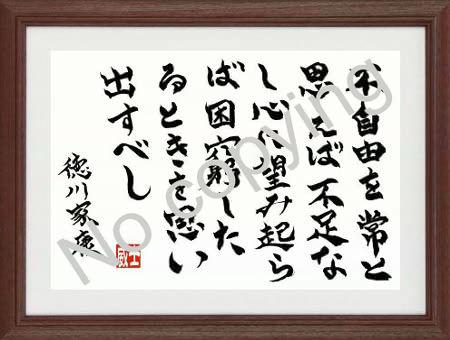 不自由を常と
思えば不足な
し心に望み起ら
ば困窮した
るときを思い
出すべし
徳川家康
No copying